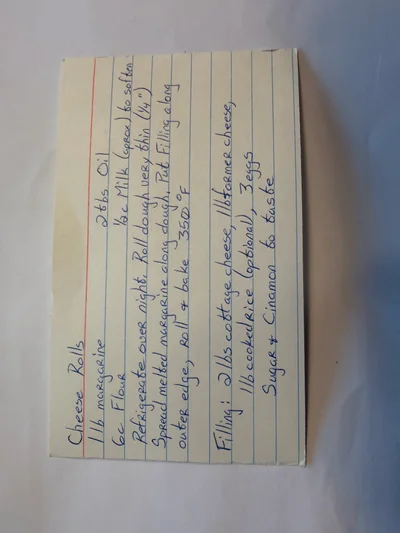 Cheese Rolls
1 lb margarine 2 tbs Oil
6c Flour ½c Milk (aprox) to soften
Refrigerate over night. Roll dough very thin (¼")
Spread melted margarine along dough. Put Filling along
outer edge, roll & bake 350°F
Filling: 2 lbs cottage cheese, 1 lb farmer cheese,
1 lb cooked rice (optional), 3 eggs
Sugar & Cinamon to taste